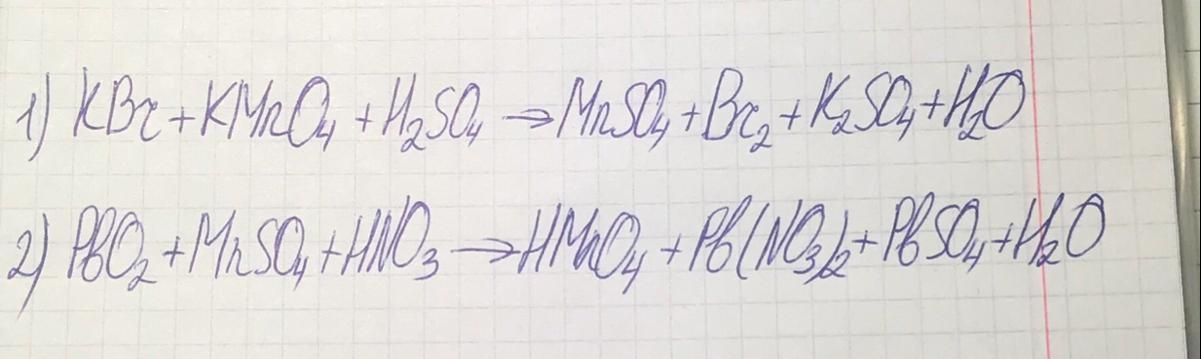 1) KBr + KMnO₄ + H₂SO₄ → MnSO₄ + Br₂ + K₂SO₄ + H₂O
2) PbO₂ + MnSO₄ + HNO₃ → HMnO₄ + Pb(NO₃)₂ + PbSO₄ + H₂O